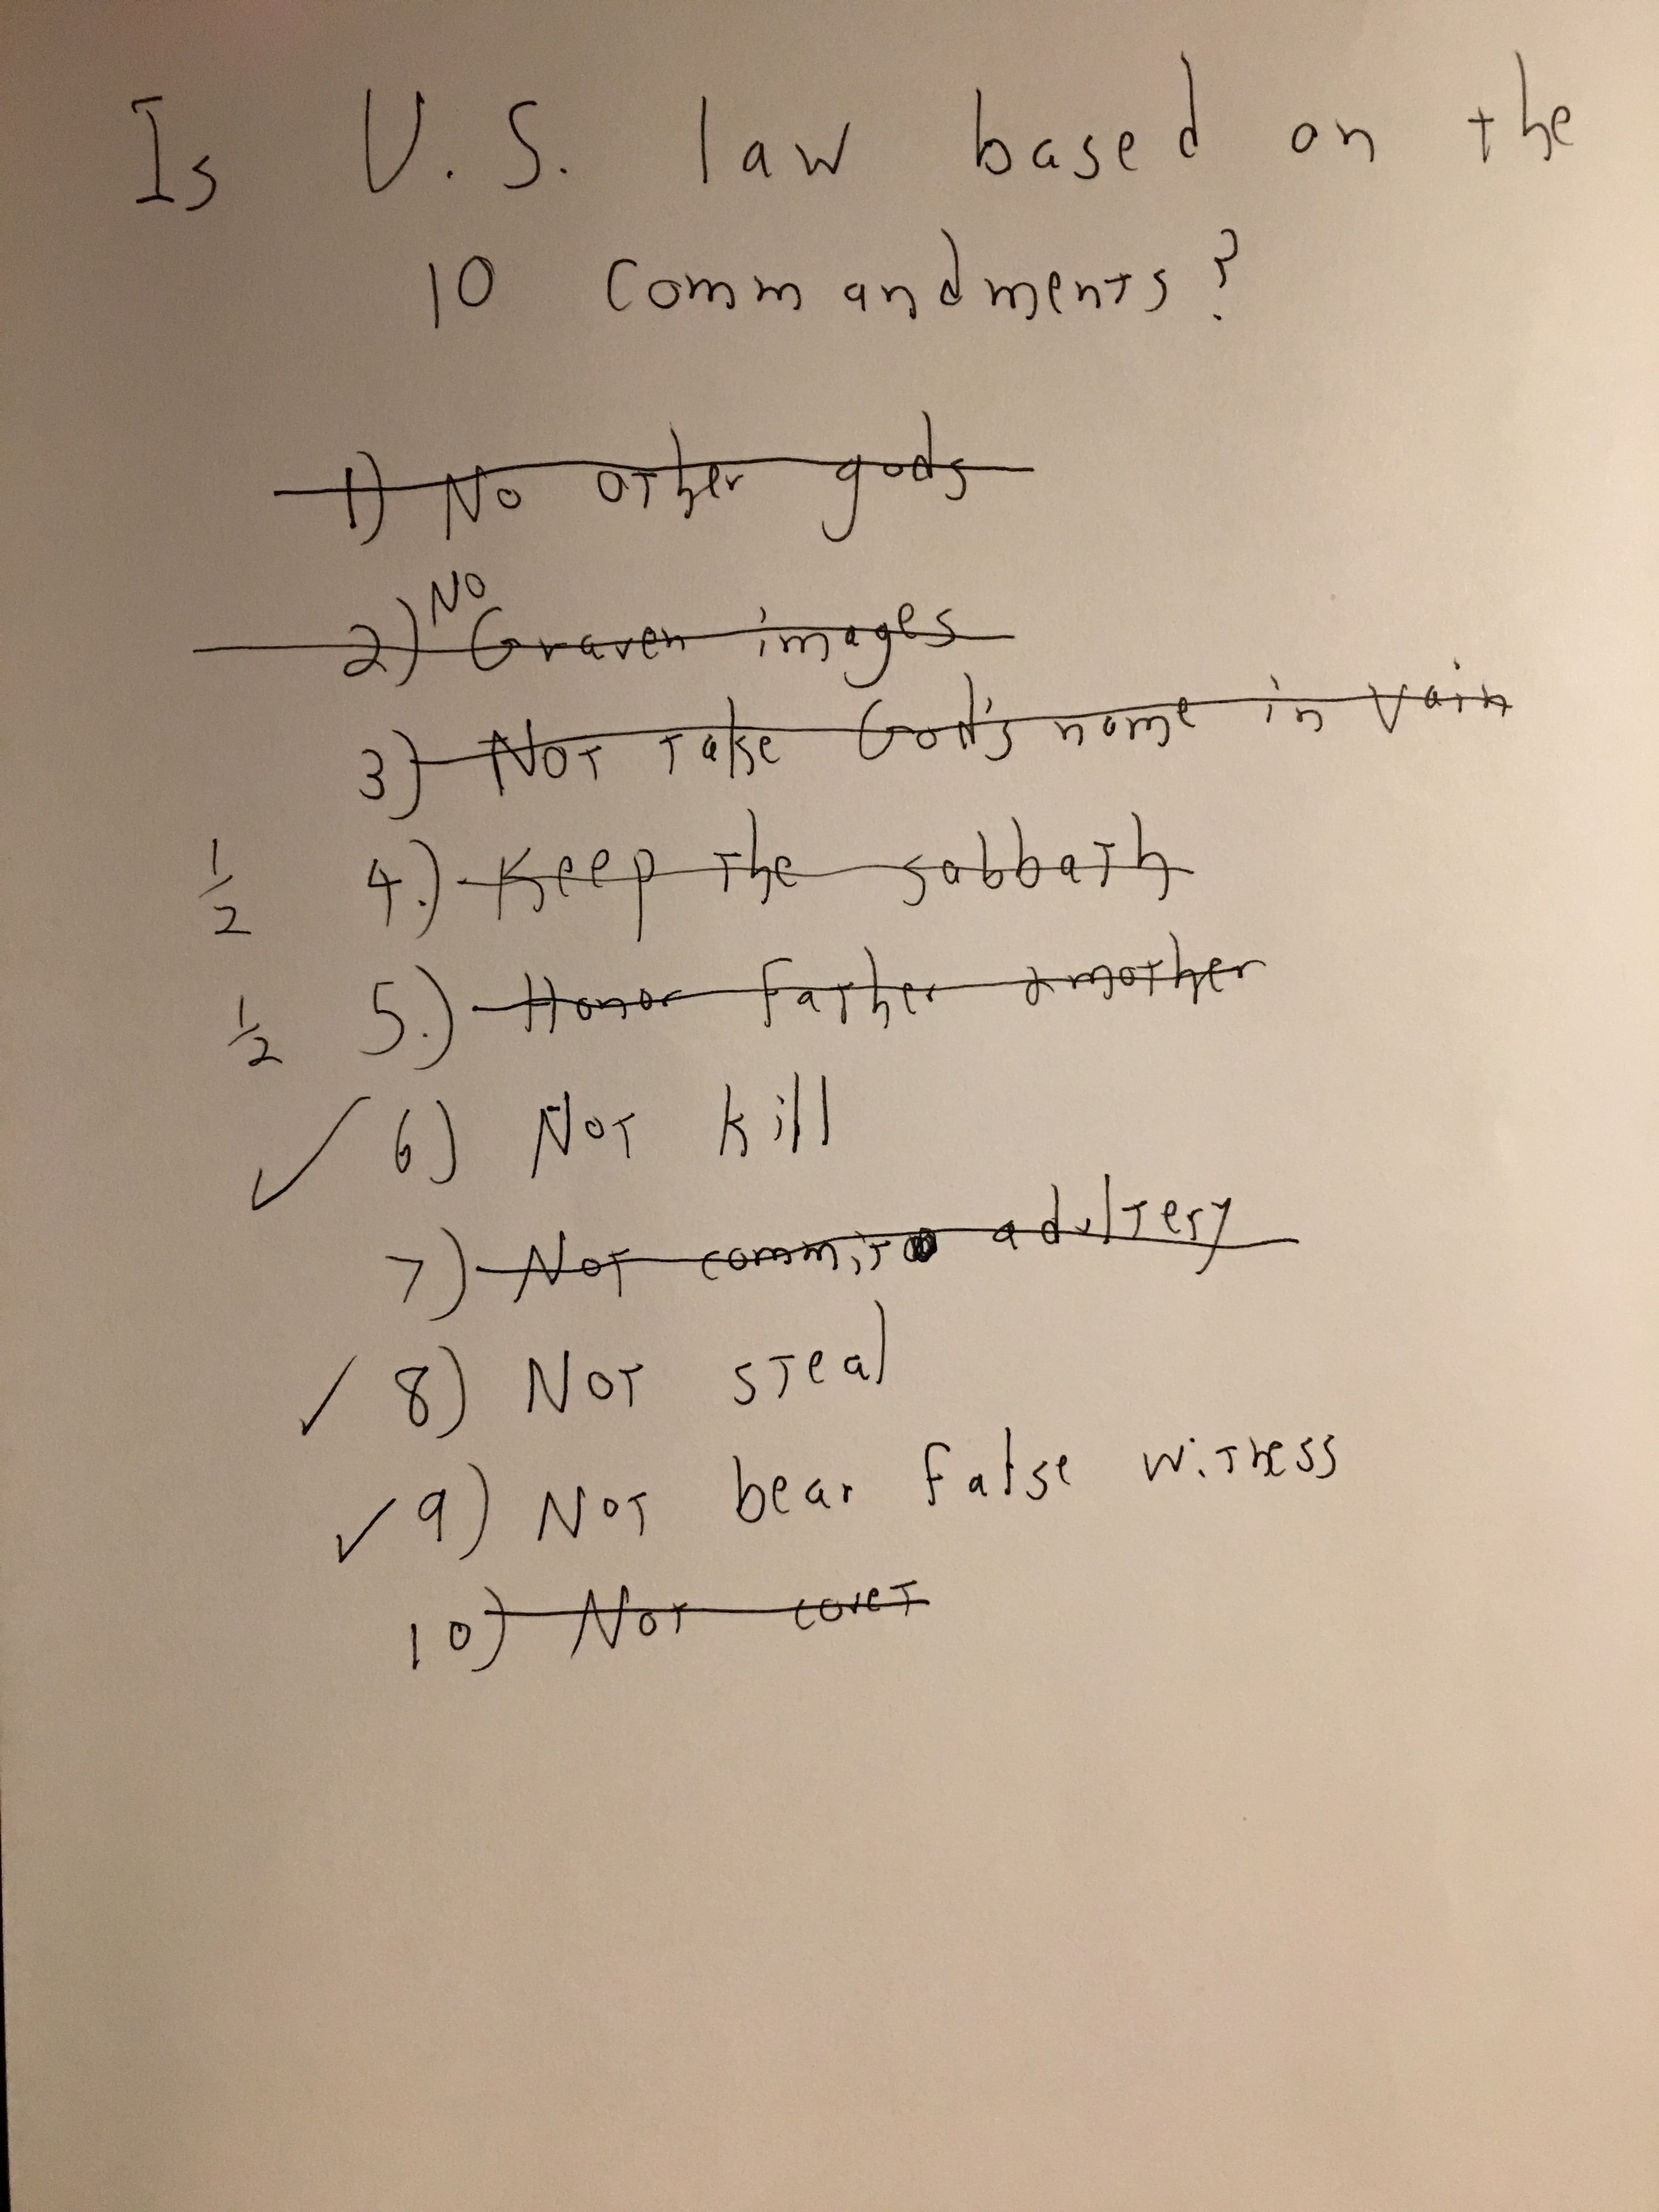 Is U.S. law based on the
10 Commandments?
1) No other gods
2) No Graven images
3) Not take God's name in vain
1/2 4.) Keep the sabbath
1/2 5.) Honor Father & mother
✓ 6) Not kill
7) Not commit adultery
✓ 8) Not steal
✓ 9) Not bear false witness
10) Not covet